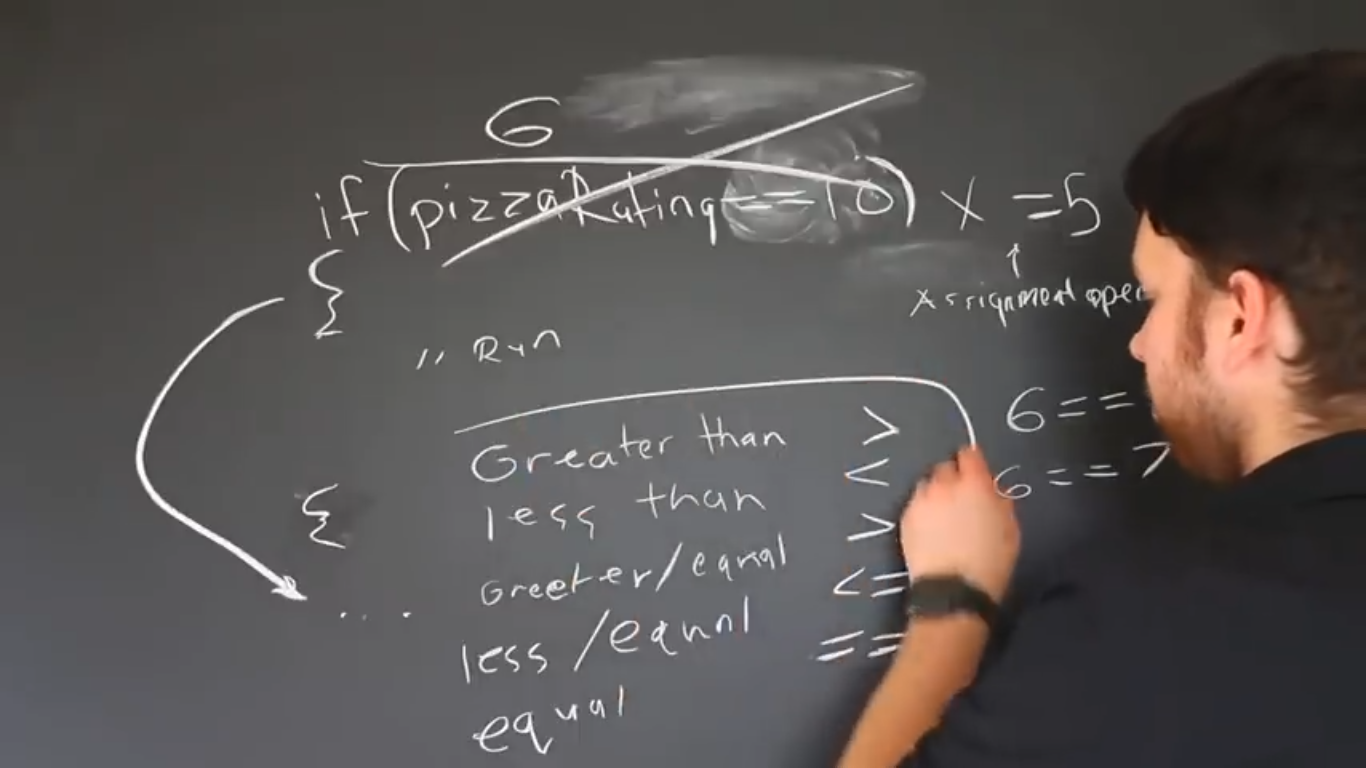 6
if (pizzaRating == 10) x = 5
{
↑
Assignment oper
// Run
6 ==
6 == 7
Greater than >
less than <
{
Greeter/equal >
less/equal <=
... 
equal ==